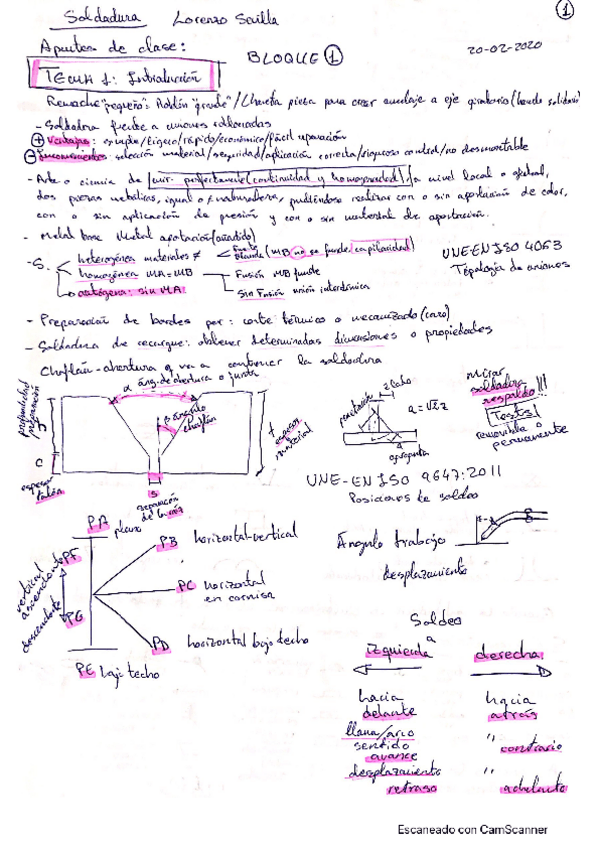 Soldadura Lorenzo Sevilla
1
Apuntes de clase:
BLOQUE 1
20-02-2020
TEMA 1: Introducción
Remache "pequeño". Roblón "grande" / Chaveta pieza para crear anclaje a eje giratorio (hacerlo solidario)
- Soldadura frente a uniones
+ ventajas: simple/ligero/rápido/económico/fácil reparación
- inconvenientes: selección material/seguridad/aplicación correcta/riguroso control/no desmontable
- Arte o ciencia de unir perfectamente (continuidad y homogeneidad) a nivel local o global,
dos piezas metálicas, igual o ≠ naturaleza, pudiéndose realizar con o sin aportación de calor,
con o sin aplicación de presión y con o sin material de aportación.
- Metal base Metal aportación (añadido)
- S.
heterogénea materiales ≠
(MB no se funde) capilaridad)
homogénea MA=MB
Fusión MB funde
autógena: sin MA
Sin Fusión unión
UNE-EN ISO 4063
Tipología de uniones
- Preparación de bordes por: corte térmico o mecanizado (caro)
- Soldadura de recargue: obtener determinadas dimensiones o propiedades
Chaflán - abertura q va a contener la soldadura
α áng. de abertura o junta
profundidad preparación
β ángulo chaflán
t espesor material
c
espesor talón
s
separación de
z lado
penetración
a = √2 z
a garganta
Mirar
soldadura
respaldo!!!
Tests!
removible o
permanente
UNE-EN ISO 9647:2011
Posiciones de soldeo
PA
plano
PB horizontal-vertical
PC horizontal
en cornisa
PD horizontal bajo techo
PE bajo techo
vertical ascendente PF
descendente PG
Ángulo trabajo
desplazamiento
Soldeo
a
izquierda derecha
hacia hacia
delante atrás
llama/arco
sentido " contrario
avance
desplazamiento "
retraso adelanto
Escaneado con CamScanner